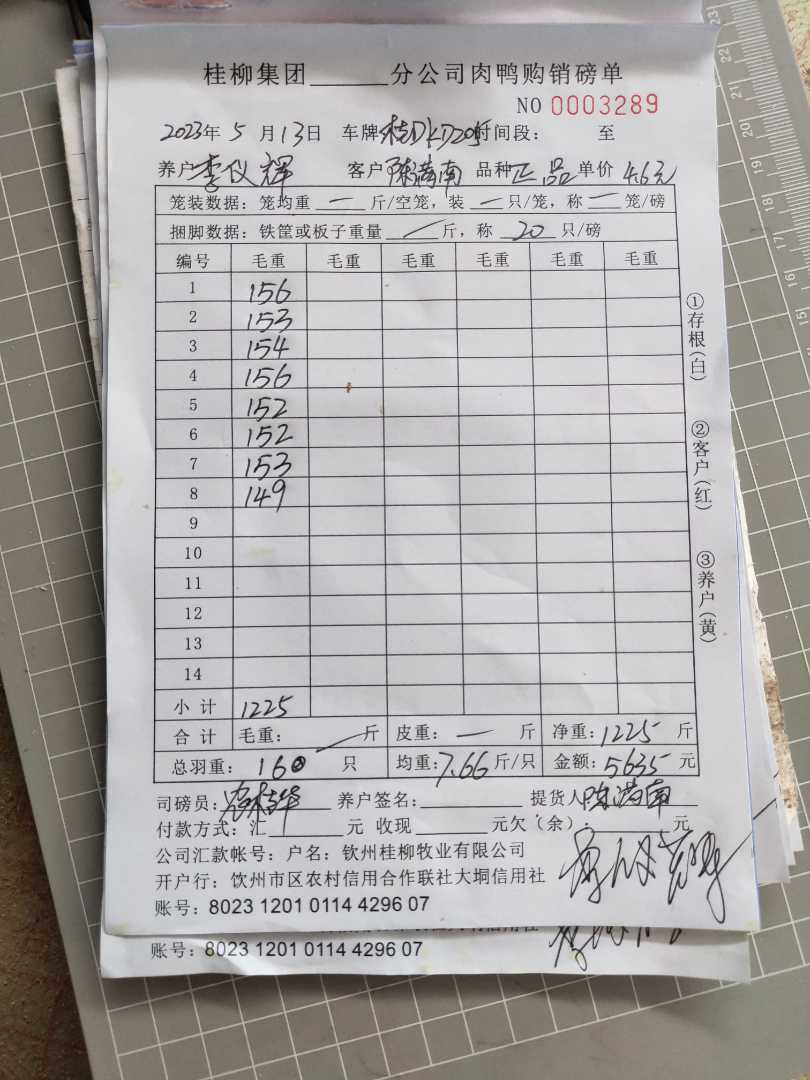 桂柳集团______分公司肉鸭购销磅单
NO 0003289
2023年 5 月 13日 车牌 时间段： 至
养户 李仪辉 客户 陈满南 品种 正品 单价 4.6元
笼装数据：笼均重 一 斤/空笼，装 一 只/笼，称 一 笼/磅
捆脚数据：铁筐或板子重量 / 斤，称 20 只/磅
编号 毛重 毛重 毛重 毛重 毛重 毛重
1 156
2 153
3 154
4 156
5 152
6 152
7 153
8 149
9
10
11
12
13
14
小计 1225
合计 毛重： 一 斤 皮重： 一 斤 净重：1225 斤
总羽重： 160 只 均重：7.66 斤/只 金额：5635 元
司磅员： 养户签名：______ 提货人 陈满南
付款方式：汇______元 收现______元欠（余）：______元
公司汇款帐号：户名：钦州桂柳牧业有限公司
开户行：饮州市区农村信用合作联社大垌信用社
账号：8023 1201 0114 4296 07
账号：8023 1201 0114 4296 07
①存根(白)
②客户(红)
③养户(黄)